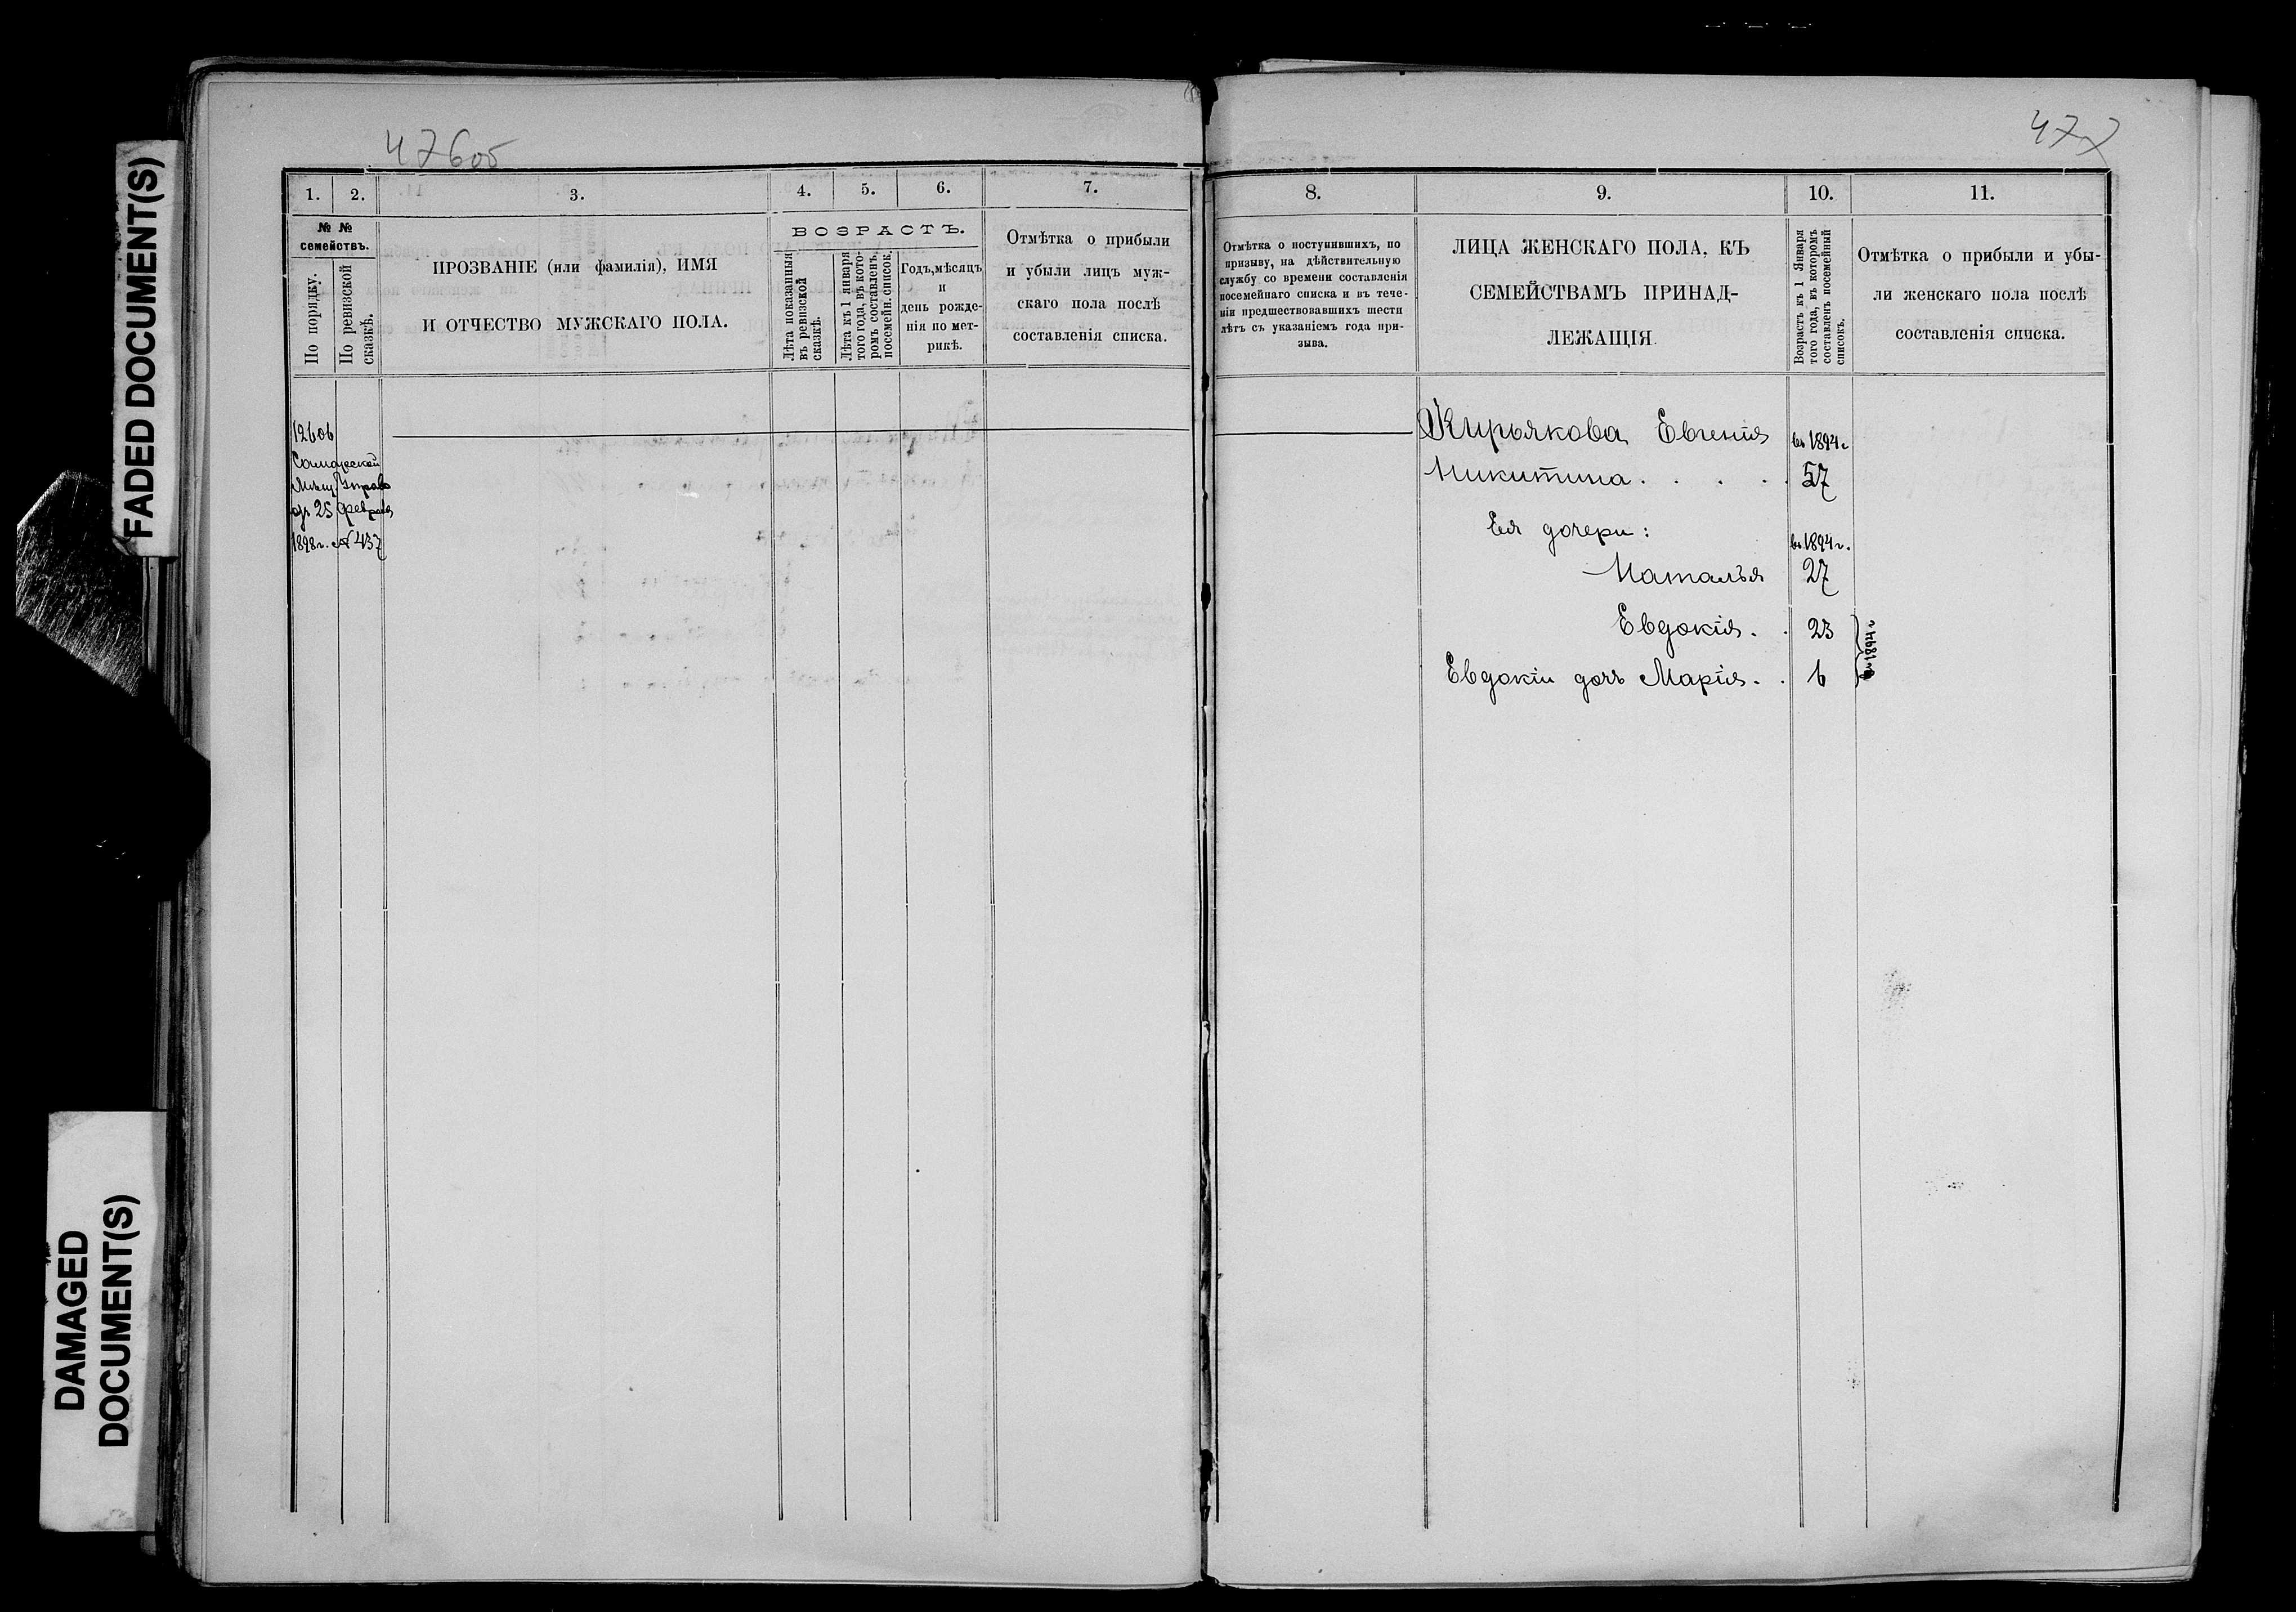 FADED DOCUMENT(S)
DAMAGED
DOCUMENT(S)
476об
1.
2.
3.
4.
5.
6.
7.
№ №
семействъ.
По порядку.
По ревизской
сказкѣ.
ПРОЗВАНІЕ (или фамилія), ИМЯ
И ОТЧЕСТВО МУЖСКАГО ПОЛА.
ВОЗРАСТЪ.
Лѣта показанныя
въ ревизской
сказкѣ.
Лѣта къ 1 января
того года, въ кото-
ромъ составленъ,
посемейн. список.
Годъ, мѣсяцъ
и
день рожде-
нія по мет-
рикѣ.
Отмѣтка о прибыли
и убыли лицъ муж-
скаго пола послѣ
составленія списка.
12606
Самарской
Мѣщ Управ
от 25 февраля
1898 г. № 437
477
8.
9.
10.
11.
Отмѣтка о поступившихъ, по
призыву, на дѣйствительную
службу со времени составленія
посемейнаго списка и въ тече-
ніи предшествовавшихъ шести
лѣтъ съ указаніемъ года при-
зыва.
ЛИЦА ЖЕНСКАГО ПОЛА, КЪ
СЕМЕЙСТВАМЪ ПРИНАД-
ЛЕЖАЩІЯ.
Возрастъ къ 1 Января
того года, въ которомъ
составленъ посемейный
списокъ.
Отмѣтка о прибыли и убы-
ли женскаго пола послѣ
составленія списка.
Кирьякова Евгенія въ 1894 г
Никитина . . . . 57
Ея дочери: въ 1894 г.
Наталья 27
Евдокія . . 23
Евдокіи дочь Марія . . 6
въ 1894 г